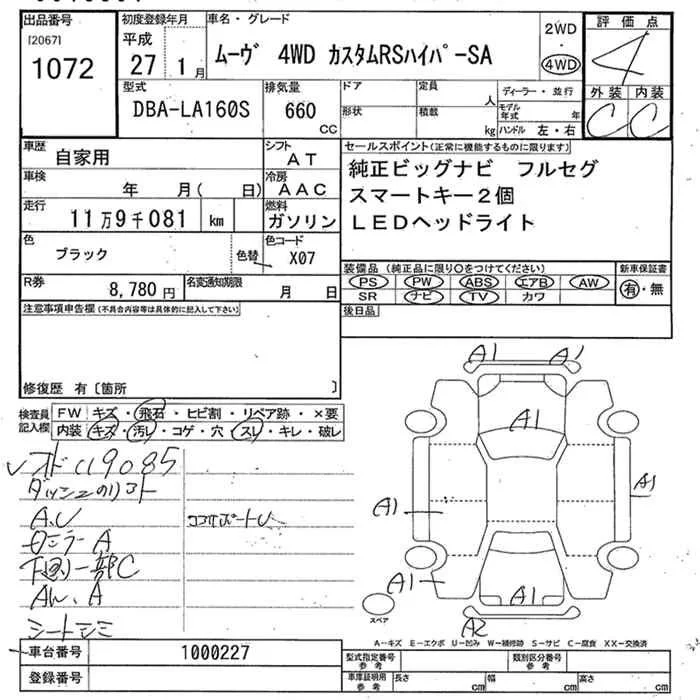 出品番号
[2067]
1072
初度登録年月
平成
27 1月
車名・グレード
ムーヴ 4WD カスタムRSハイパーSA
2WD
・
4WD
評価点
4
外装 内装
C C
型式
DBA-LA160S
排気量
660
CC
ドア
形状
定員
人
積載
kg
ディーラー・並行
モデル年式 年
ハンドル 左・右
車歴
自家用
シフト
AT
車検
年 月( 日)
冷房
AAC
走行
11万9千081 km
燃料
ガソリン
色
ブラック
色替
色コード
X07
R券
8,780円
名変通知期限
月 日
セールスポイント(正常に機能するものに限ります)
純正ビッグナビ フルセグ
スマートキー2個
LEDヘッドライト
装備品(純正品に限り○をつけてください)
PS PW ABS エアB AW
SR ナビ TV カワ
新車保証書
有・無
後日品
注意事項申告欄(不具合内容等は具体的に記入して下さい)
修復歴 有〔箇所 〕
検査員記入欄
FW キズ・飛石・ヒビ割・リペア跡・×要
内装 キズ・汚レ・コゲ・穴・スレ・キレ・破レ
A1 A1
A1
A1
A1
A1
A1
A2
スペア
119085
A.U
ミラーA
下廻り一部C
AW.A
シートシミ
A-キズ E-エクボ U-凹み W-補修跡 S-サビ C-腐食 XX-交換済
車台番号
1000227
登録番号
型式指定番号
参考
類別区分番号
参考
車庫証明用
参考
長さ cm 幅 cm 高さ cm